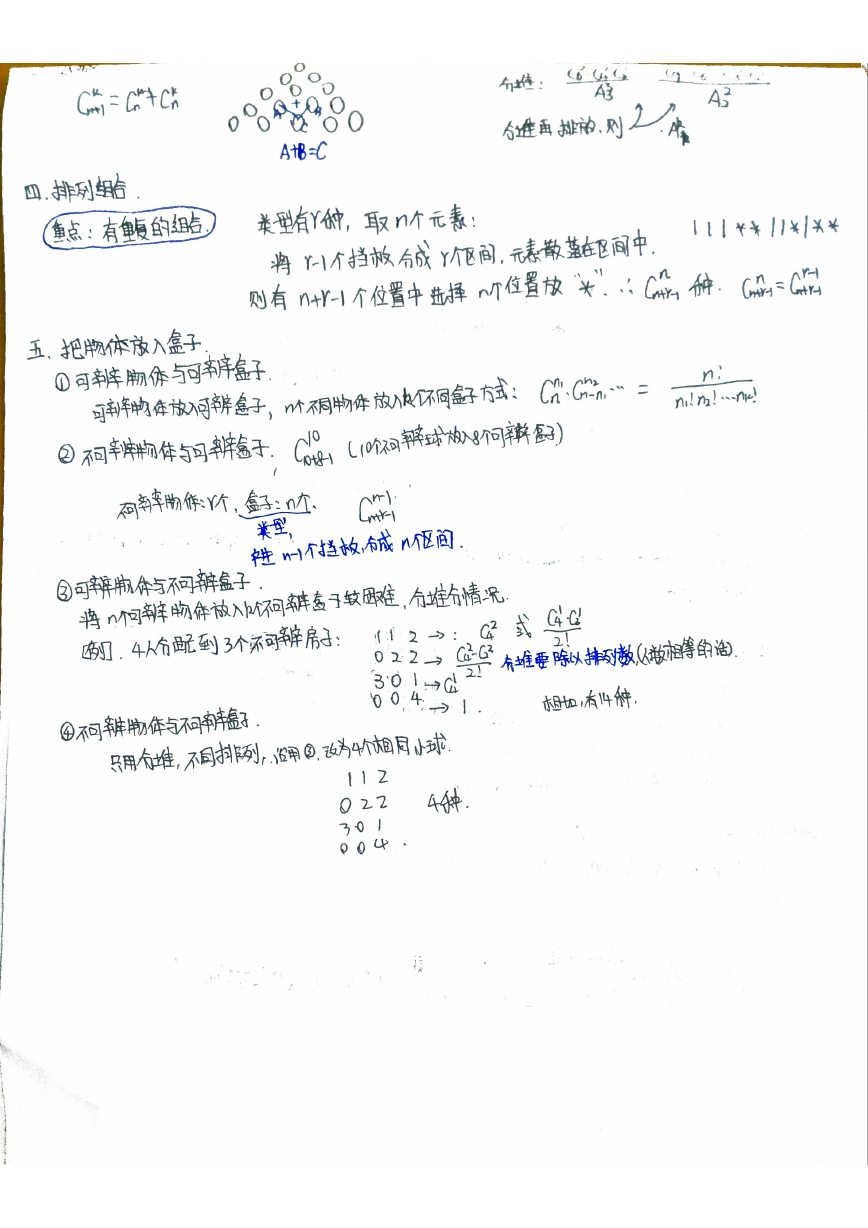 C_{n+1}^{k} = C_n^{k-1} + C_n^k
A+B=C
分堆:
A_3^3
A_3^2
分堆再排放,则
四.排列组合.
重点:有重复的组合.
类型有r种,取n个元素:
111**11*1**
将 r-1个挡板合成 r个区间,元素散落在区间中.
则有 n+r-1 个位置中选择 n个位置放 "*". ∴ C_{n+r-1}^{n} 种. C_{n+r-1}^{n} = C_{n+r-1}^{r-1}
五.把物体放入盒子.
①可辨物体与可辨盒子.
可辨物体放入可辨盒子,n个不同物体放入k个不同盒子方式: C_n^{n_1}·C_{n-n_1}^{n_2}… = n!/(n_1!n_2!…n_k!)
②不可辨物体与可辨盒子. C_{10+8-1}^{10} (10个不可辨球放入8个可辨盒子)
不可辨物体:r个,盒子:n个. C_{n+r-1}^{n-1}
类型,
n-1个挡板,合成 n个区间.
③可辨物体与不可辨盒子.
将n个可辨物体放入k个不可辨盒子较困难,分堆分情况.
[例].4人分配到3个不可辨房子:
1 1 2 →: C_4^2 或 C_4^1·C_3^1/2!
0 2 2 → C_4^2·C_2^2/2! 分堆要除以排列数(个数相等的话).
3 0 1 → C_4^1
0 0 4 → 1.
相加,有14种.
④不可辨物体与不可辨盒子.
只用分堆,不同排列,沿用③,改为4个相同小球.
1 1 2
0 2 2
4种.
3 0 1
0 0 4.